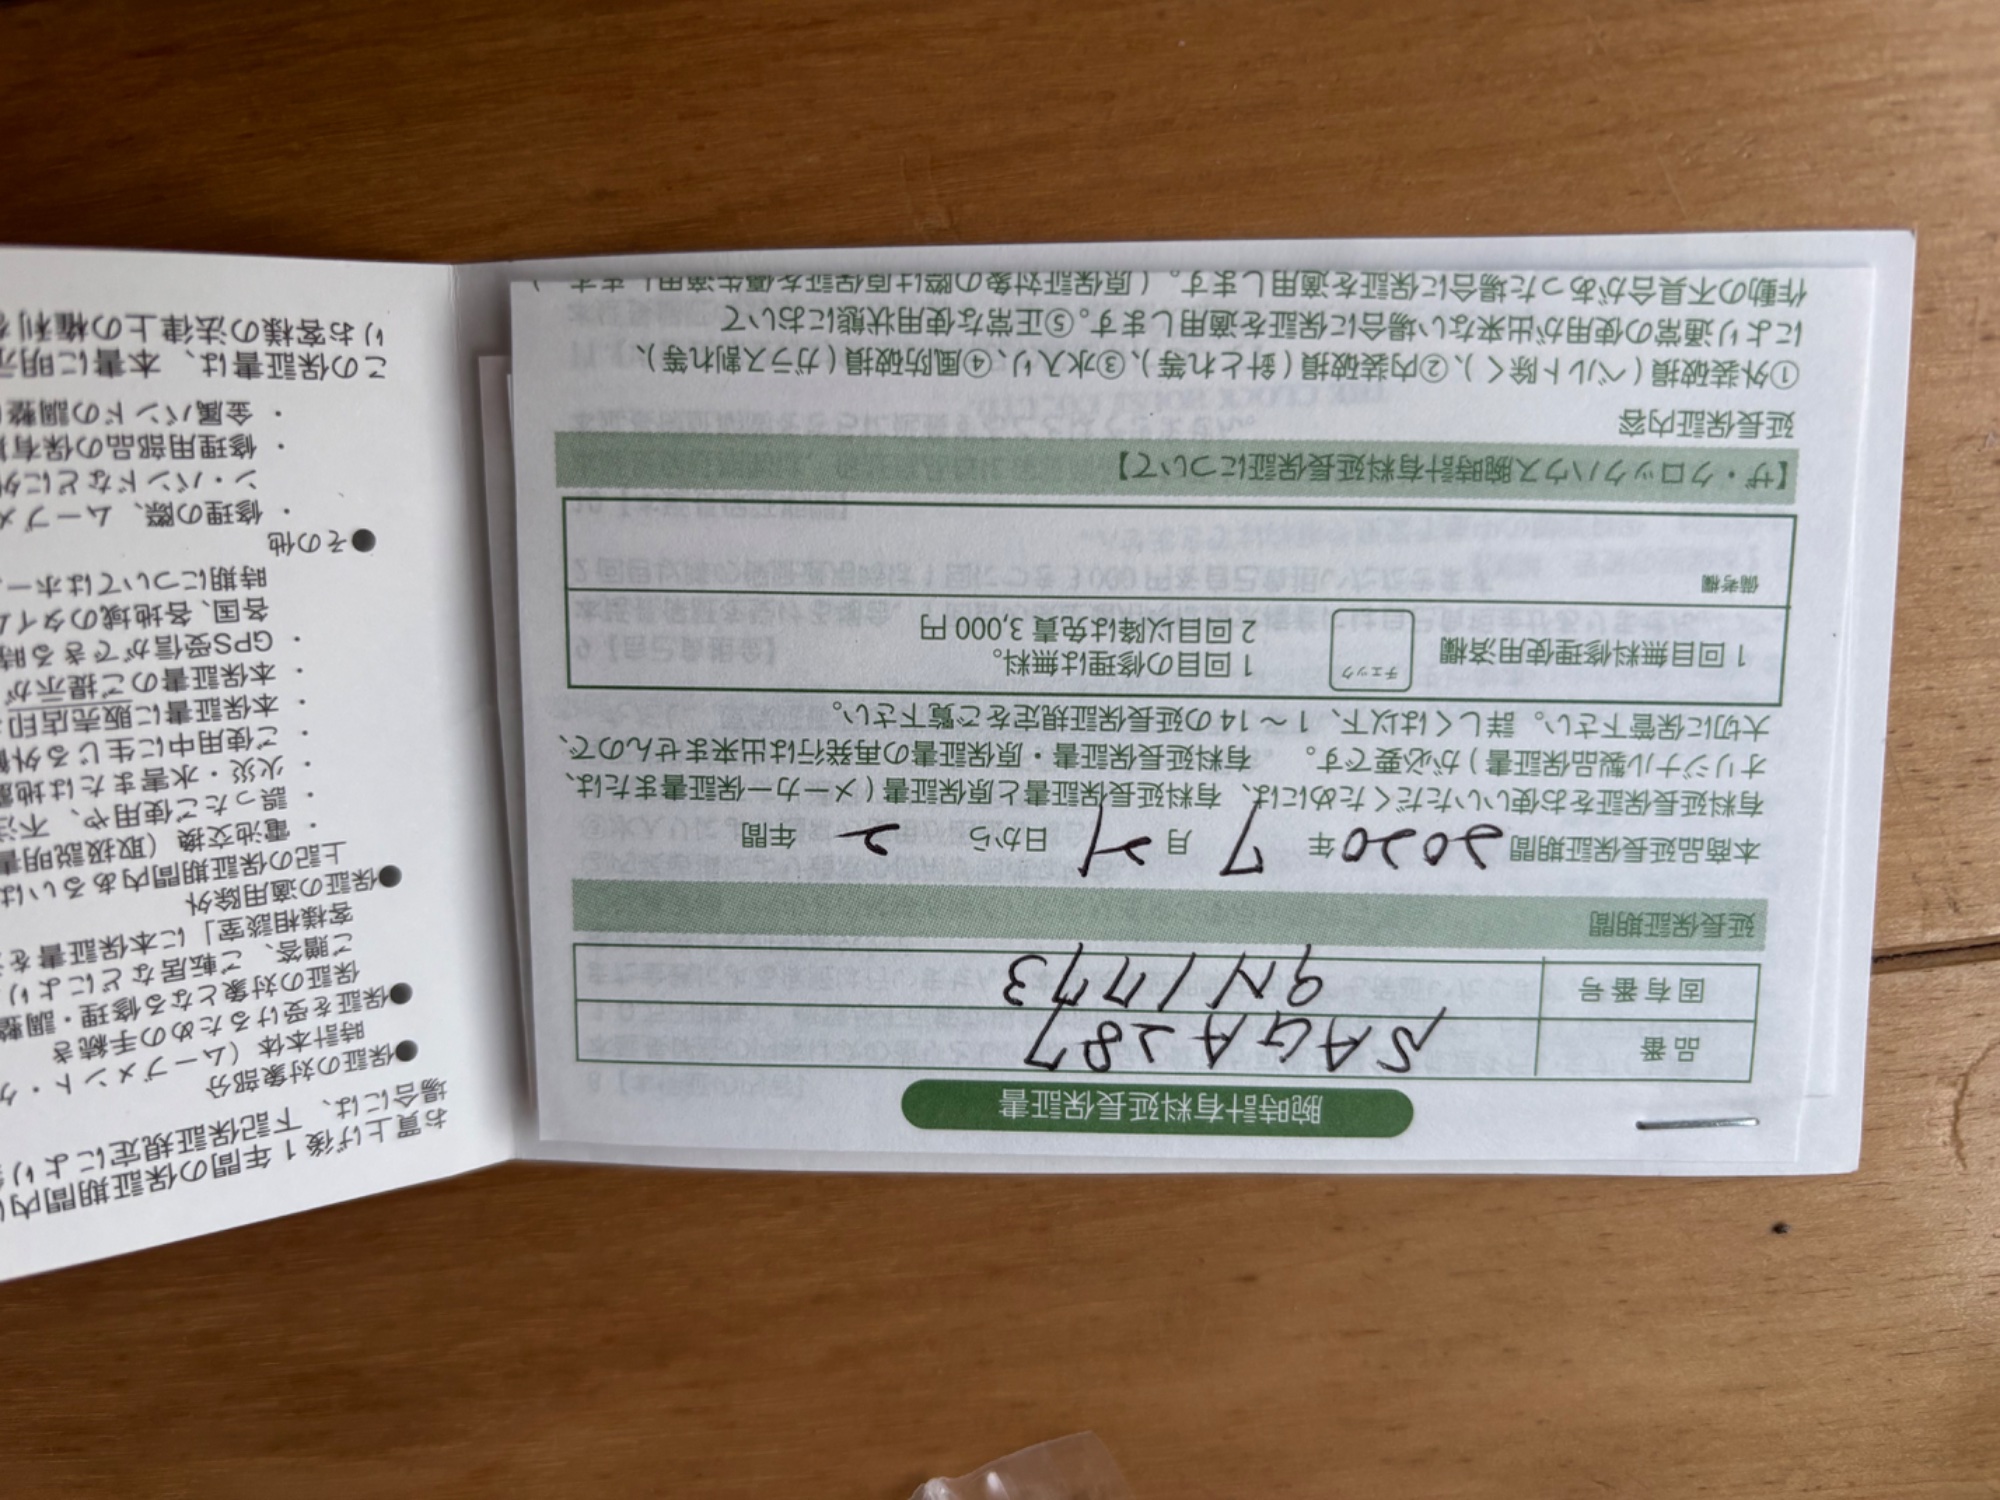 腕時計有料延長保証書
品番 SAGA287
固有番号 9N1773
延長保証期間
本商品延長保証期間 2020年 7月 21日から 2年間
有料延長保証をお使いいただくためには、有料延長保証書と原保証書(メーカー保証書または、
オリジナル製品保証書)が必要です。 有料延長保証書・原保証書の再発行は出来ませんので、
大切に保管下さい。詳しくは以下、1～14の延長保証規定をご覧下さい。
1回目無料修理使用済欄 チェック
1回目の修理は無料。
2回目以降は免責3,000円
備考欄
【ザ・クロックハウス腕時計有料延長保証について】
延長保証内容
①外装破損(ベルト除く)、②内装破損(針とれ等)、③水入り、④風防破損(ガラス割れ等)、
により通常の使用が出来ない場合に保証を適用します。⑤正常な使用状態において
作動の不具合があった場合に保証を適用します。(原保証対象の際は原保証を優先適用します
お買上げ後1年間の保証期間内
場合には、下記保証規定により
●保証の対象部分
時計本体(ムーブメント・ケ
●保証を受けるための手続き
保証の対象となる修理・調整
ご贈答、ご転居などにより
客様相談室」に本保証書を
●保証の適用除外
上記の保証期間内あるいは
・電池交換(取扱説明書
・誤ったご使用や、不注
・火災・水害または地震
・ご使用中に生じる外観
・本保証書に販売店印
・本保証書のご提示が
・GPS受信ができる時
各国、各地域のタイム
時期についてはホー
●その他
・修理の際、ムーブメ
ン・バンドなどに外
・修理用部品の保有期
・金属バンドの調整
この保証書は、本書に明示
りお客様の法律上の権利を